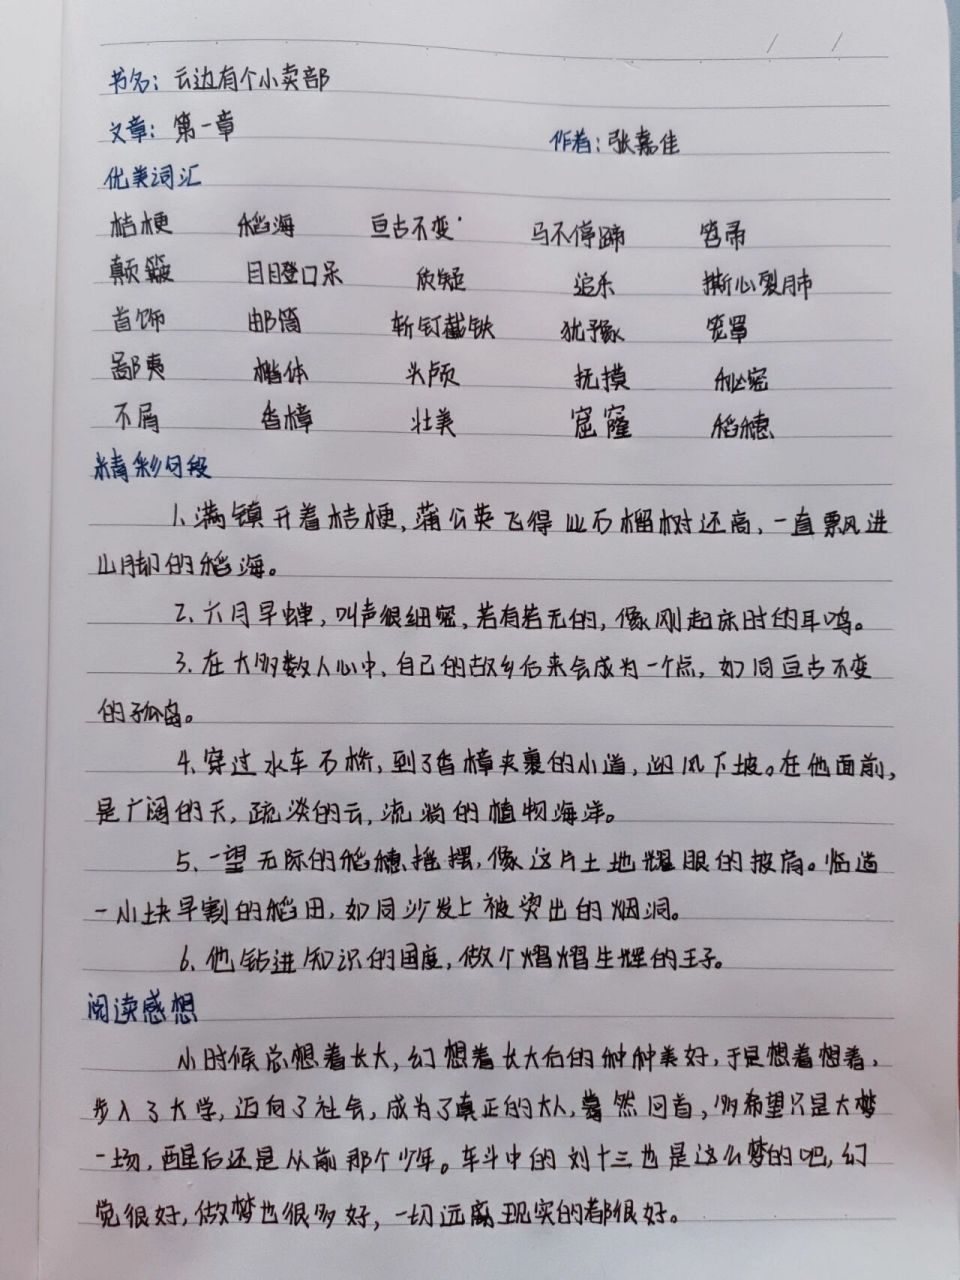 书名：云边有个小卖部
文章：第一章 作者：张嘉佳
优美词汇
桔梗 稻海 亘古不变 马不停蹄 笤帚
颠簸 目瞪口呆 欣疑 追杀 撕心裂肺
首饰 邮筒 斩钉截铁 犹豫 笼罩
鄙夷 楷体 头颅 抚摸 秘密
不屑 香樟 壮美 窟窿 稻穗
精彩句段
1、满镇开着桔梗，蒲公英飞得比石榴树还高，一直飘进
山脚的稻海。
2、六月早蝉，叫声很细密，若有若无的，像刚起床时的耳鸣。
3、在大多数人心中，自己的故乡后来会成为一个点，如同亘古不变
的孤岛。
4、穿过水车石桥，到了香樟夹裹的小道，迎风下坡。在他面前，
是广阔的天，疏淡的云，流淌的植物海洋。
5、一望无际的稻穗摇摆，像这片土地耀眼的披肩。临道
一小块早割的稻田，如同沙发上被烫出的烟洞。
6、他钻进知识的国度，做个熠熠生辉的王子。
阅读感想
小时候总想着长大，幻想着长大后的种种美好，于是想着想着，
步入了大学，迈向了社会，成为了真正的大人，蓦然回首，多希望只是大梦
一场，醒后还是从前那个少年。车斗中的刘十三也是这么梦的吧，幻
觉很好，做梦也很多好，一切远离现实的都很好。